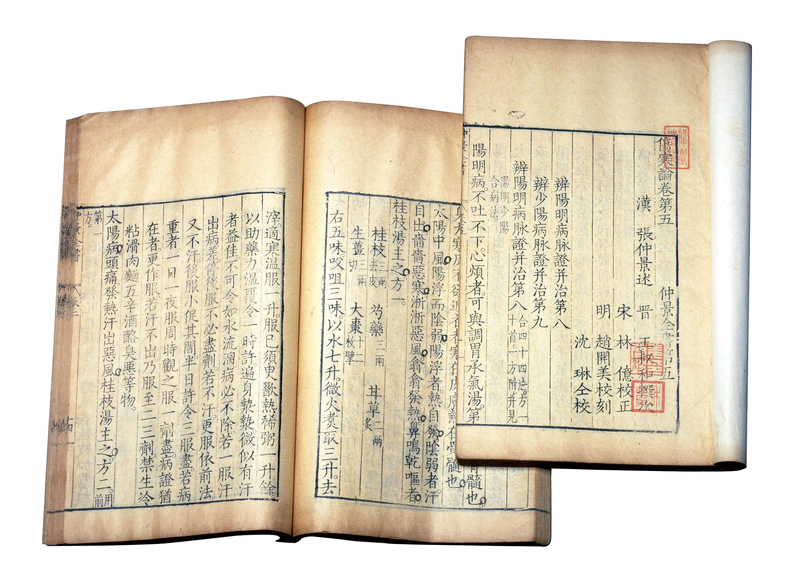 傷寒論卷第五 仲景全書第五
漢 張仲景述 晉 王叔和撰次
宋 林 億校正
明 趙開美校刻
沈 琳仝校
辨陽明病脉證并治第八
辨少陽病脉證并治第九
辨陽明病脉證并治第八 合四十四法方一十首一方附并見
陽明少陽合病法
陽明病不吐不下心煩者可與調胃承氣湯第
身大寒反不欲近衣者寒在皮膚熱在骨髓也
太陽中風陽浮而陰弱陽浮者熱自發陰弱者汗
自出嗇嗇惡寒淅淅惡風翕翕發熱鼻鳴乾嘔者
桂枝湯主之方一
桂枝三兩去皮 芍藥三兩 甘草二兩炙
生薑三兩切 大棗十二枚擘
右五味㕮咀三味以水七升微火煑取三升去
滓適寒溫服一升服已須臾歠熱稀粥一升餘
以助藥力溫覆令一時許遍身漐漐微似有汗
者益佳不可令如水流漓病必不除若一服汗
出病差停後服不必盡劑若不汗更服依前法
又不汗後服小促其間半日許令三服盡若病
重者一日一夜服周時觀之服一劑盡病證猶
在者更作服若汗不出乃服至二三劑禁生冷
粘滑肉麵五辛酒酪臭惡等物
太陽病頭痛發熱汗出惡風桂枝湯主之方二用前
第一方